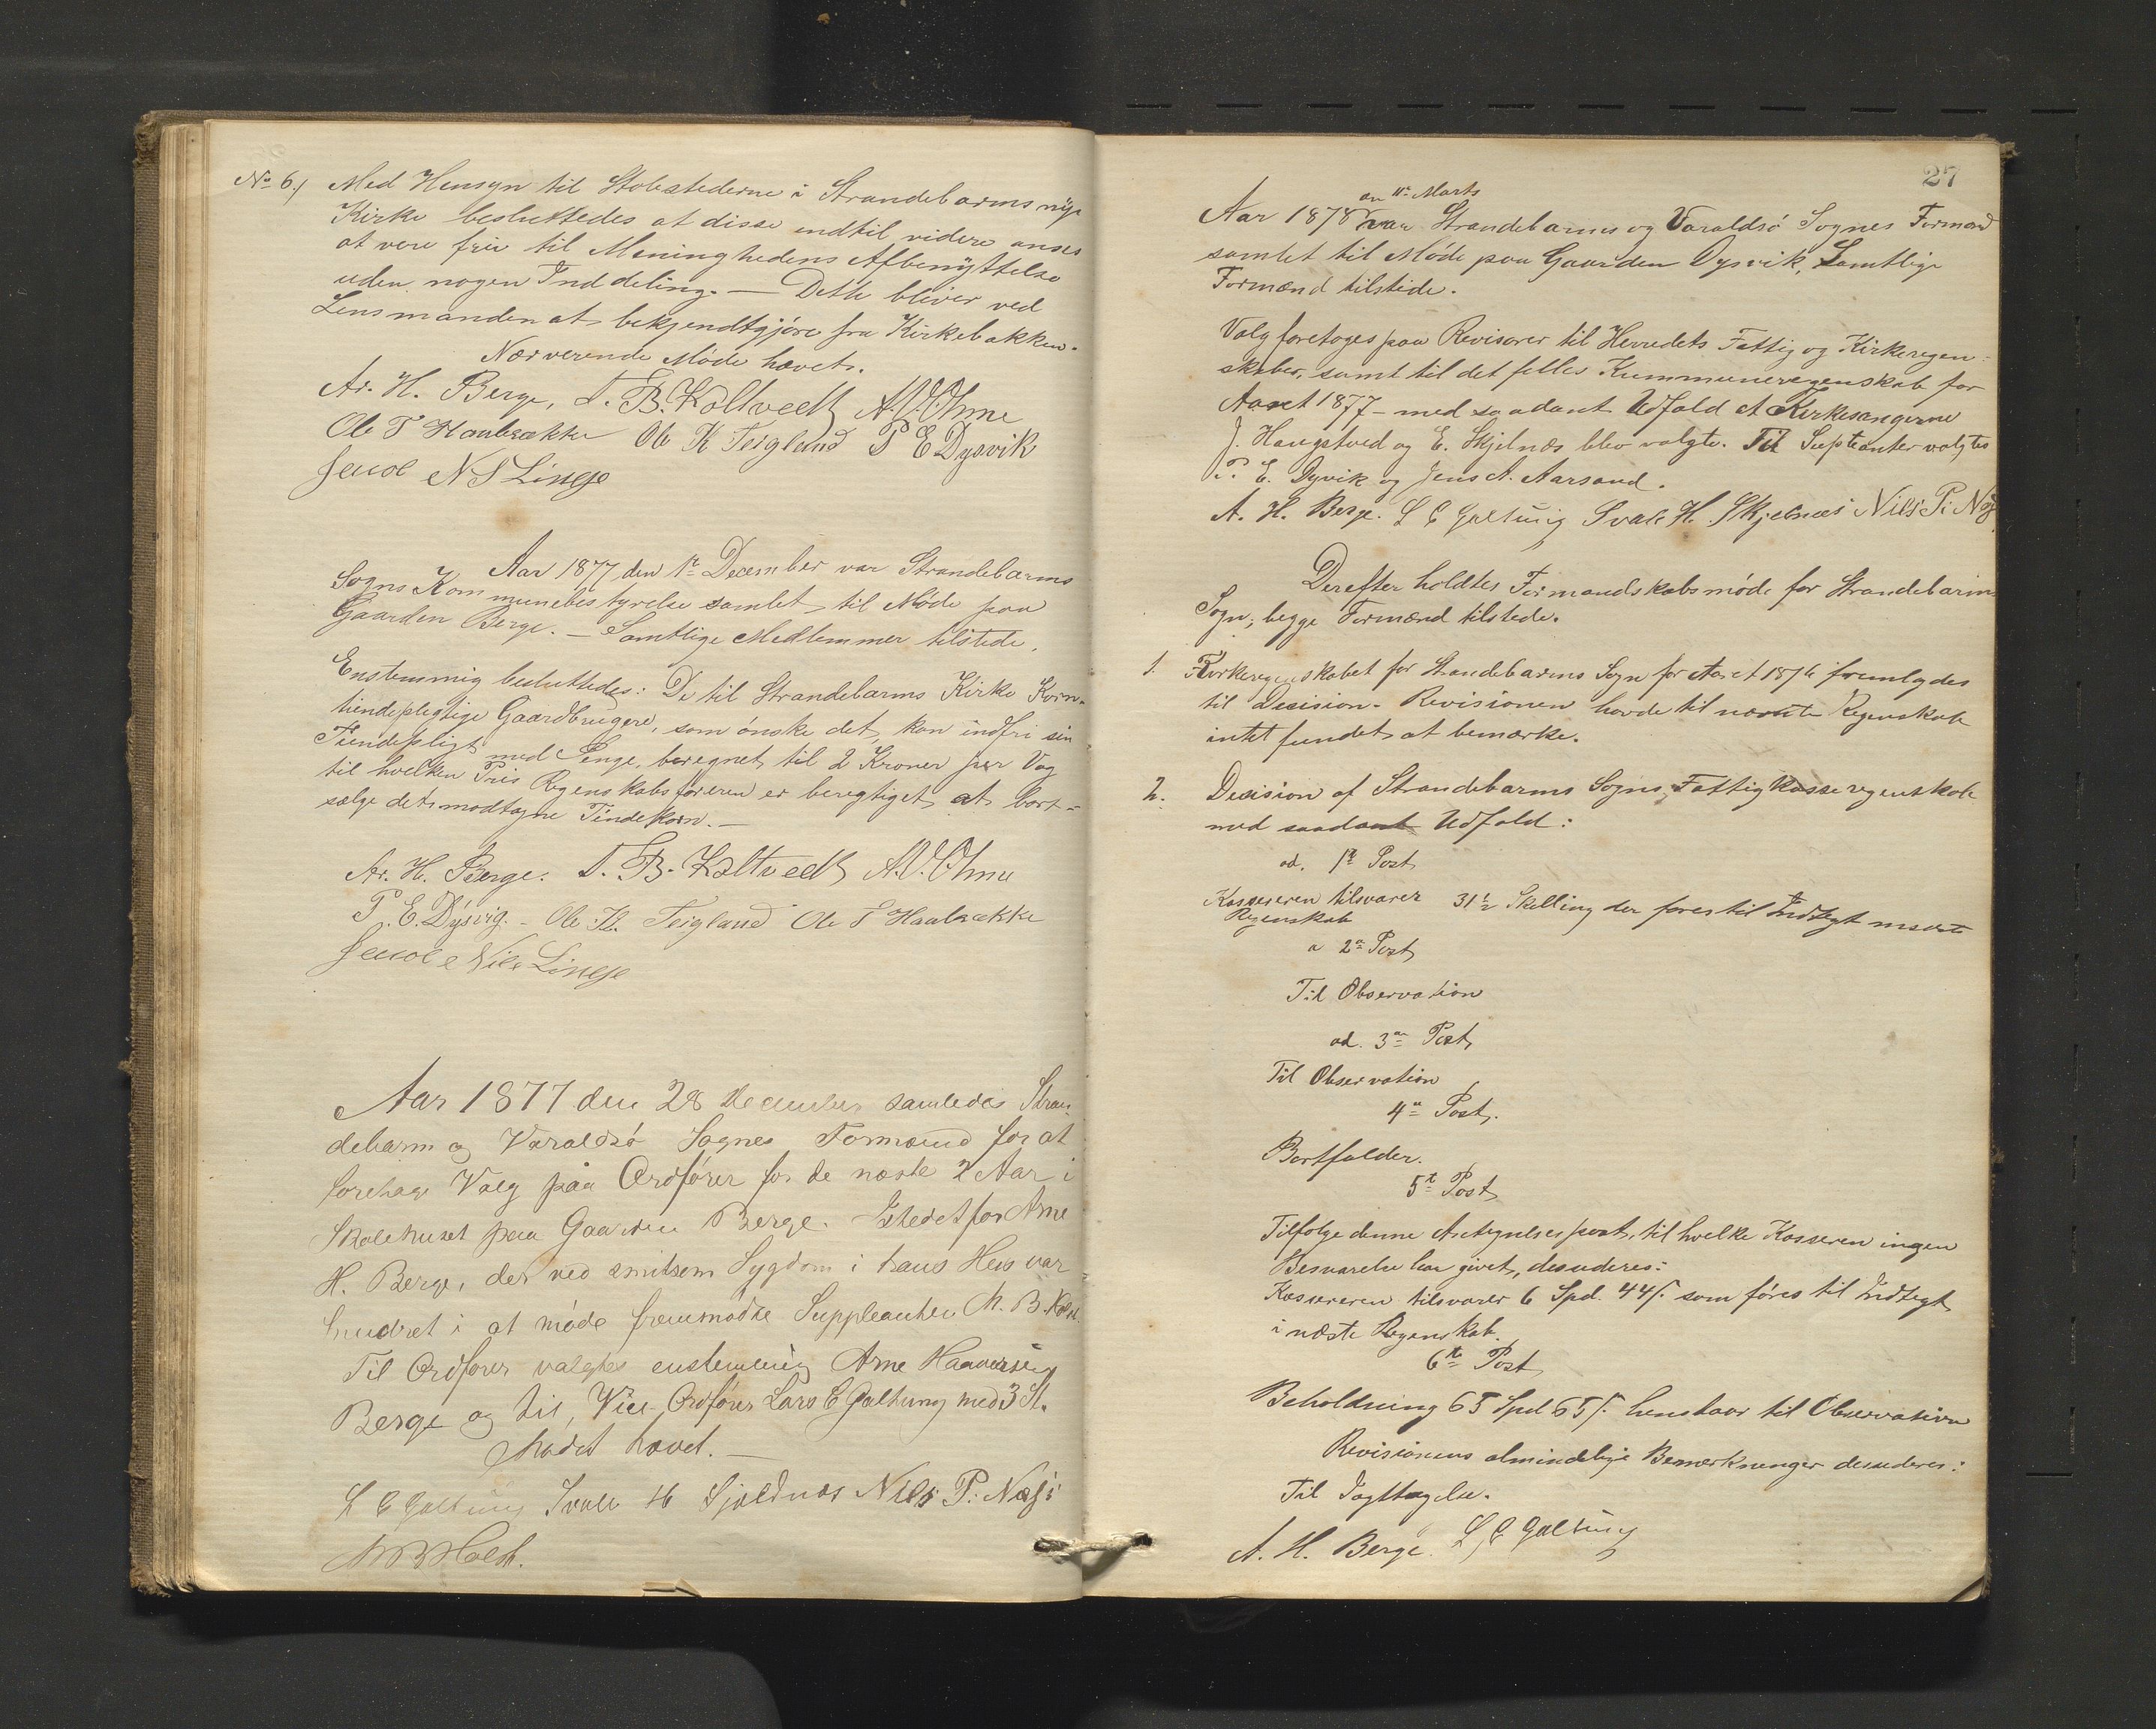 No 6.) Med Hensyn til Stolestederne i Strandebarms nye
Kirke besluttedes at disse indtil videre anses
at vere frie til Menighedens Afbenyttelse
uden nogen Inddeling. — Dette bliver ved
Lensmanden at bekjendtgjøre fra Kirkebakken.
Nærverende Møde hævet.
Ar. H. Berge, T. B. Koltvedt A. O. Ohme
Ole T Haukaække Ole K Teigland P E Dysvik
Jacob N S Linge
Aar 1877 den 1te December var Strandebarms
Sogns Kommunebestyrelse samlet til Møde paa
Gaarden Berge. — Samtlige Medlemmer tilstede.
Enstemmig besluttedes: De til Strandebarms Kirke Korn-
tiendepligtige Gaardbrugere, som ønske det, kan indfri sin
Tiendepligt med Penge, beregnet til 2 Kroner per Vog
til hvilken Pris Regenskabsføreren er beregtiget at bort-
sælge det modtagne Tindekorn. —
Ar. H. Berge. T. B. Koltvedt A. O. Ohme
P. E. Dysvig. - Ole K. Teigland Ole T Haukaække
Jacob Nils Linge
Aar 1877 den 28 December samledes Stran-
debarm og Varaldsø Sognes Formænd for at
foretage Valg paa Ordfører for de næste 2 Aar i
Skolehuset paa Gaarden Berge. Istedetfor Arne
H. Berge, der ved smitsom Sygdom i hans Hus var
hindret i at møde fremmødte Suppleanten M. B. Holst.
Til Ordfører valgtes enstemmig Arne Haaversen
Berge og til Vice-Ordfører Lars E Galtung med 3 St.
Mødet hævet. —
L E Galtung Ivall H Sjældnæs Nils P. Næss
M B Holst.
27
den 11te Marts
Aar 1878 var Strandebarms og Varaldsø Sognes Formænd
samlet til Møde paa Gaarden Dysvik, Samtlige
Formænd tilstede.
Valg foretoges paa Revisorer til Herredets Fattig og Kirkeregen-
skaber, samt til det felles Kummuneregenskab for
Aaret 1877 - med saadant Udfald at Kirkesangerne
J. Haugstved og E. Skjelnæs blev valgte. Til Supleanter valgtes
P. E. Dyvik og Jens A. Aarsand.
A. H. Berge. L E Galtung Ivall H. Skjelnæs Nils P. Næs
Derefter holdtes Formandskabsmøde for Strandebarm
Sogn, begge Formænd tilstede.
1. Kirkeregenskabet for Strandebarms Sogn for Aaret 1876 fremlagdes
til Desision. Revisionen havde til nævnte Regenskab
intet fundet at bemærke.
2. Desision af Strandebarms Sogns Fattigkasseregenskab
med saadant Udfald:
ad. 1te Post
Kassereren tilsvarer 31½ Skilling der føres til Indtegt næste
Regenskab
a 2den Post
Til Observation
ad. 3die Post
Til Observation
4de Post.
Bortfalder.
5te Post
Tilfølge denne Antegnelsespost, til hvilke Kasseren ingen
Besvarelse har givet, desideres:
Kassereren tilsvarer 6 Spd. 44 s. som føres til Indtegt
i næste Regenskab.
6te Post
Beholdning 65 Spd 65 s. henstaar til Observation
Revisionens almindelige Bemærkninger desideres:
Til Iagttagelse.
A. H. Berge. L E Galtung